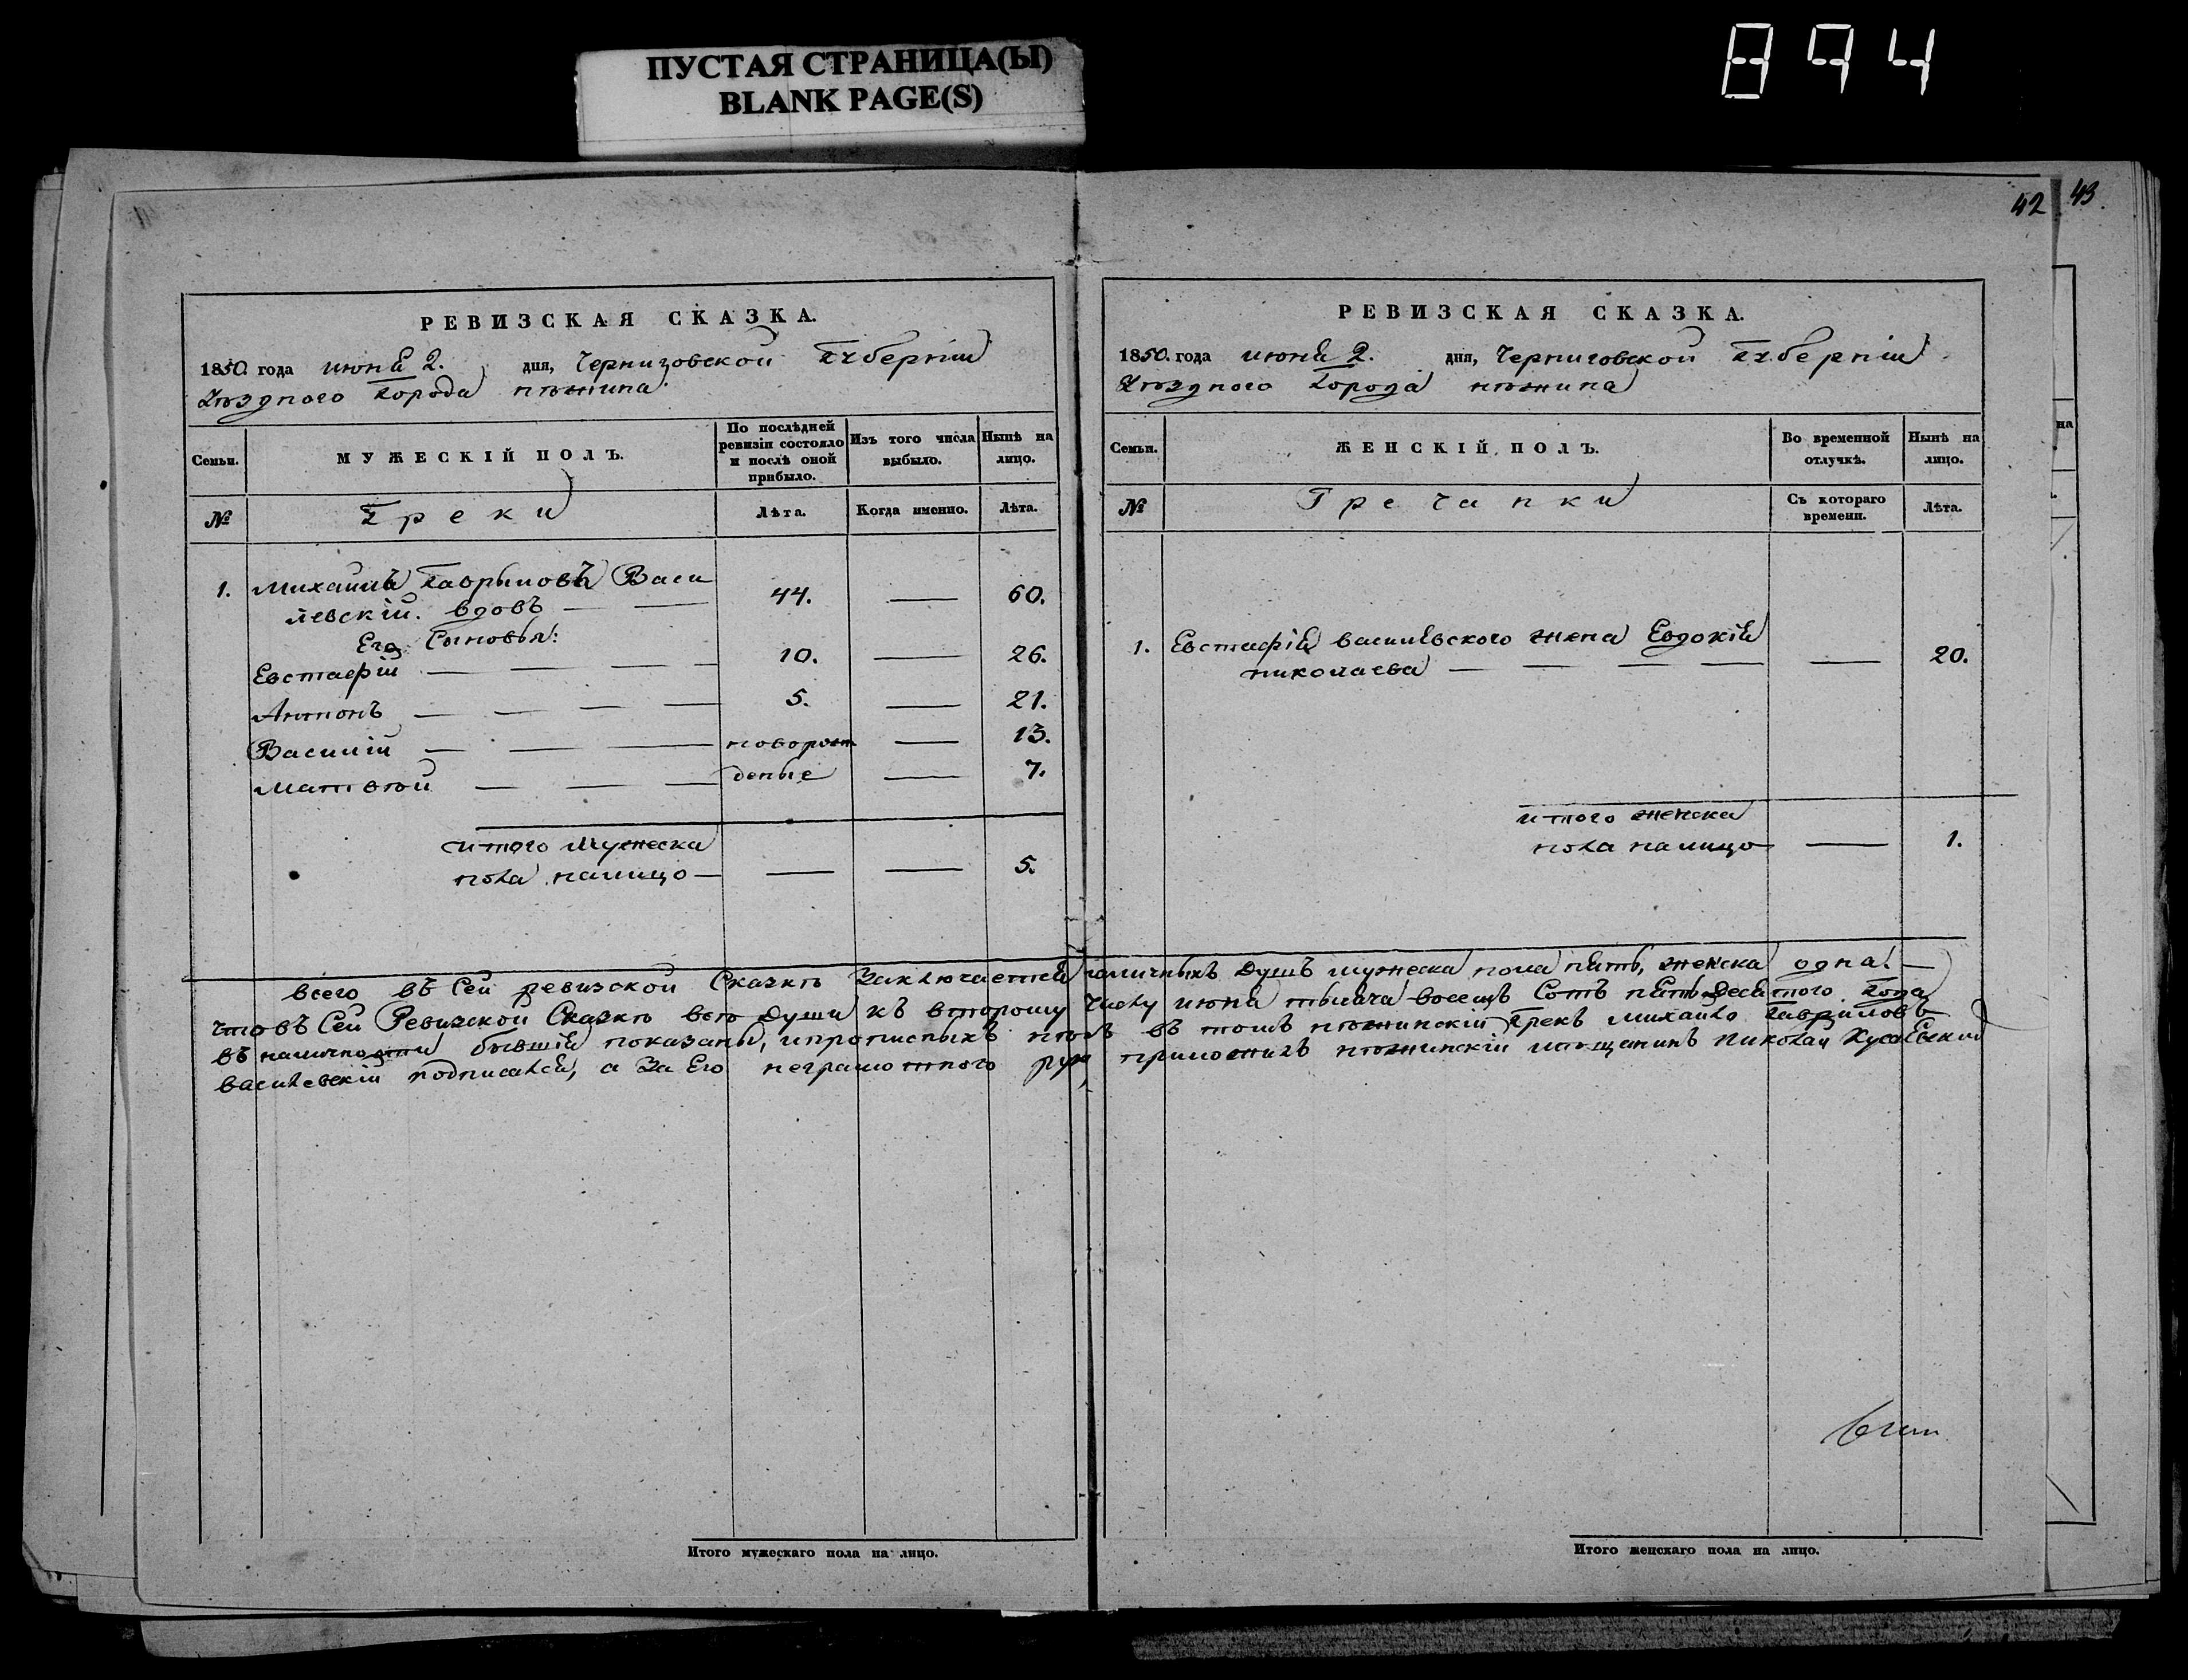 ПУСТАЯ СТРАНИЦА(Ы)
BLANK PAGE(S)
894
42
43
РЕВИЗСКАЯ СКАЗКА.
1850. года июня 2. дня, Черниговской Губерніи
Уѣзднаго Города нѣжина.
Семьи.
МУЖЕСКІЙ ПОЛЪ.
По послѣдней ревизіи состояло и послѣ оной прибыло.
Изъ того числа выбыло.
Нынѣ на лицо.
№
Греки
Лѣта.
Когда именно.
Лѣта.
1. Михаилъ Гавриловъ Васи
левскій. вдовъ — — 44. — 60.
Его Сыновья:
Евстафій — — — — 10. — 26.
Антонъ — — — — 5. — 21.
Василій — — — новорож — 13.
Матвѣй — — — деные — 7.
итого мужеска
пола налицо — — — 5.
Итого мужескаго пола на лицо.
РЕВИЗСКАЯ СКАЗКА.
1850. года июня 2. дня, Черниговской Губерніи
Уѣзднаго Города нѣжина
Семьи.
ЖЕНСКІЙ ПОЛЪ.
Во временной отлучкѣ.
Нынѣ на лицо.
№
Гречанки
Съ котораго времени.
Лѣта.
1. Евстафія василевского жена Евдокія
николаева — — — — — 20.
итого женска
пола налицо — 1.
всего въ Сей ревизской Сказкѣ Заключается наличныхъ душъ мужеска пола пять, женска одна. —
что въ Сей Ревизской Сказкѣ всѣ души къ второму числу июня тысяча восемъ Сотъ пятьдесятого Года
въ наличности бывшія показаны, и прописныхъ нѣтъ въ томъ нѣжинскій Грекъ михайло Гавриловъ
василевскій подписался, а За Его неграмотного рук приложилъ нѣжинскій мѣщанинъ николай
Итого женскаго пола на лицо.